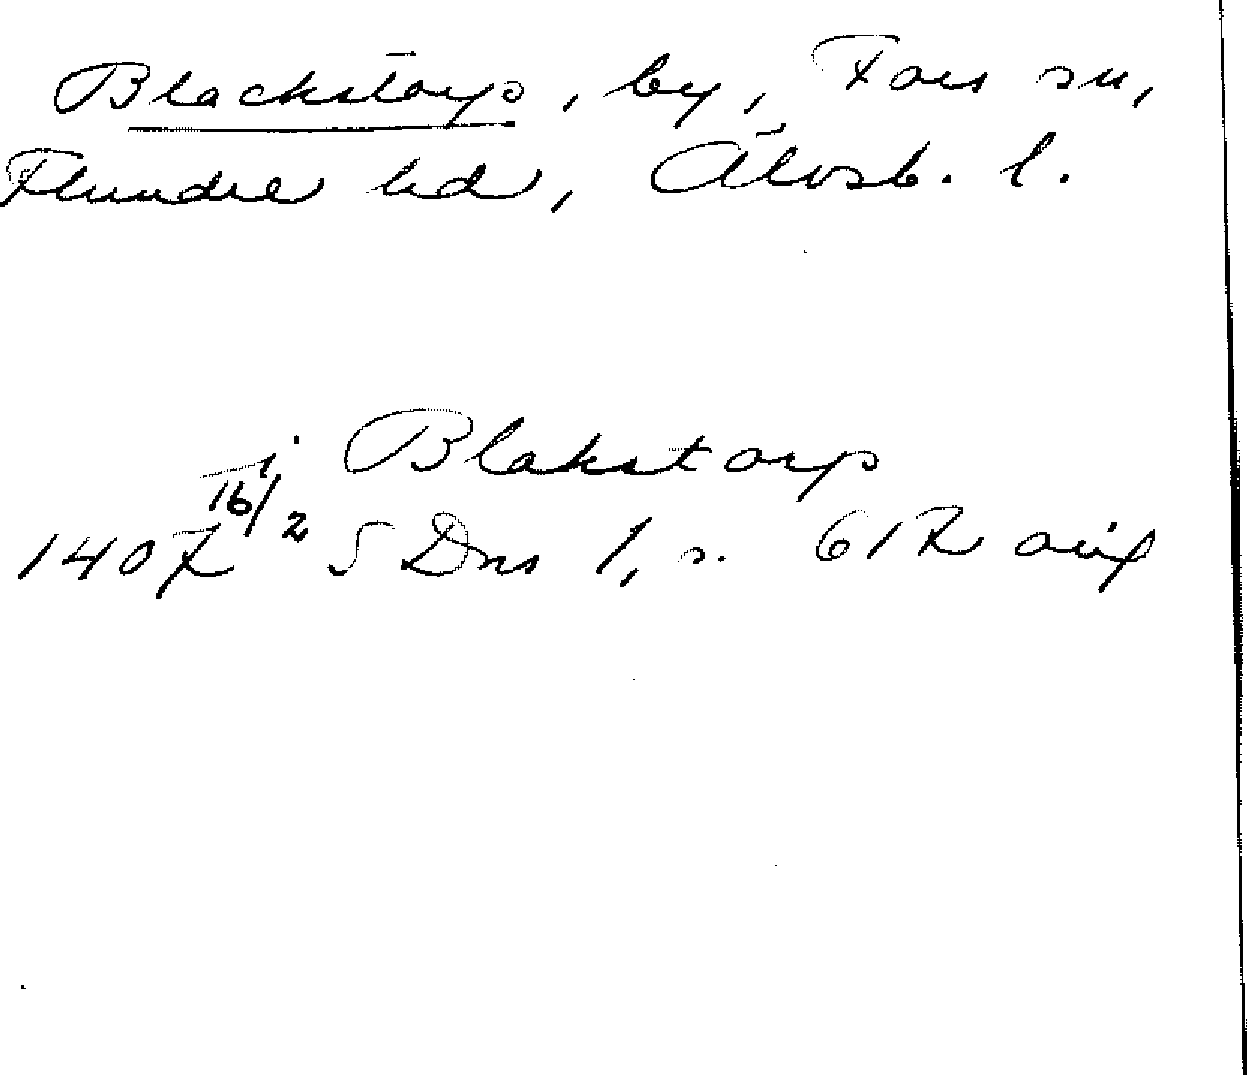 Blackstorp, by, Fors sn,
Flundre hd, Älvsb. l.
i Blakstorp
1407 16/2 SDns 1, s. 612 avg